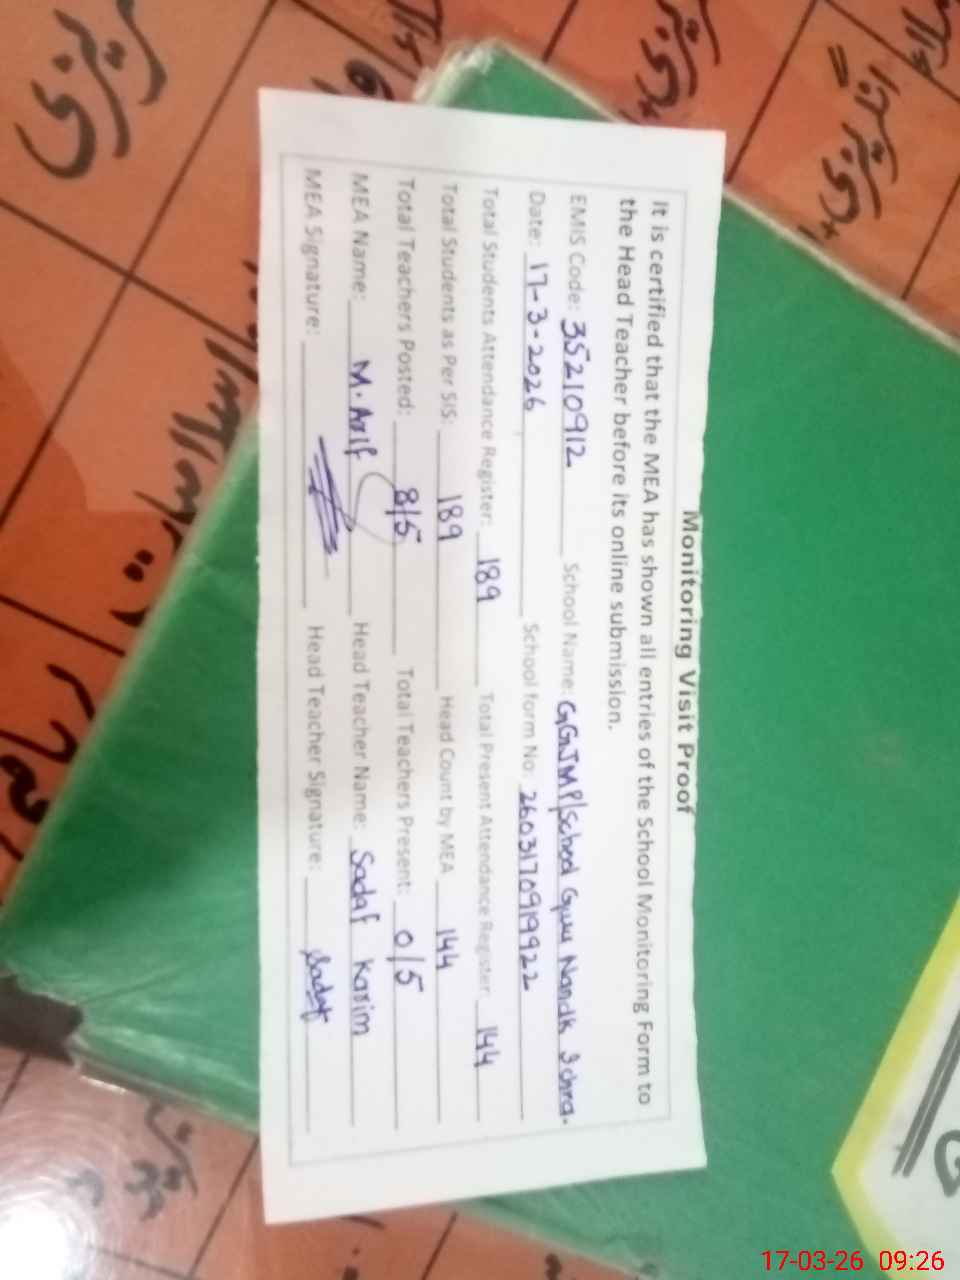 Monitoring Visit Proof
It is certified that the MEA has shown all entries of the School Monitoring Form to
the Head Teacher before its online submission.
EMIS Code: 35210912 School Name: GGJMP/School Guru Nanak Ichra.
Date: 17-3-2026 School form No: 2603170919922
Total Students Attendance Register: 189 Total Present Attendance Register: 144
Total Students as Per SIS: 189 Head Count by MEA 144
Total Teachers Posted: 8/5 Total Teachers Present: 0/5
MEA Name: M. Arif Head Teacher Name: Sadaf Karim
MEA Signature: Head Teacher Signature: Sadaf
انگریزی
اسلامیات
17-03-26 09:26